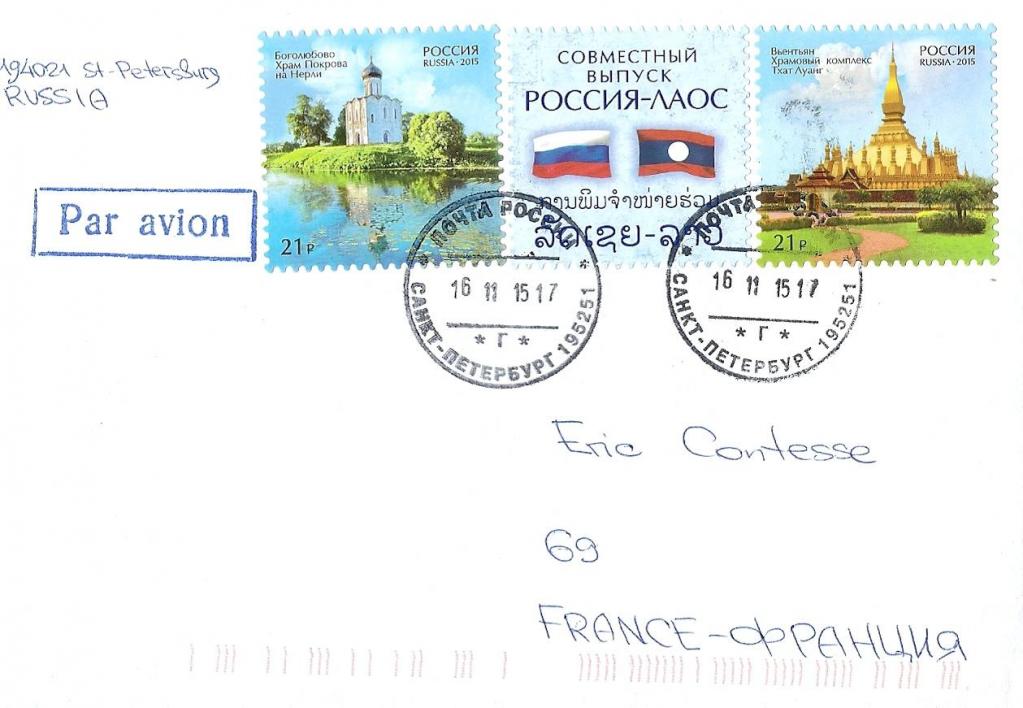 194021 St-Petersburg
RUSSIA
Par avion
Боголюбово
Храм Покрова
на Нерли
РОССИЯ
RUSSIA • 2015
21 Р
СОВМЕСТНЫЙ
ВЫПУСК
РОССИЯ-ЛАОС
ການພິມຈຳໜ່າຍຮ່ວມ
ລັດເຊຍ-ລາວ
Вьентьян
Храмовый комплекс
Тхат Луанг
РОССИЯ
RUSSIA • 2015
21 Р
ПОЧТА РОССИИ
16 11 15 17
* Г *
САНКТ-ПЕТЕРБУРГ 195251
ПОЧТА
16 11 15 17
* Г *
САНКТ-ПЕТЕРБУРГ 195251
Eric Contesse
69
FRANCE-ФРАНЦИЯ